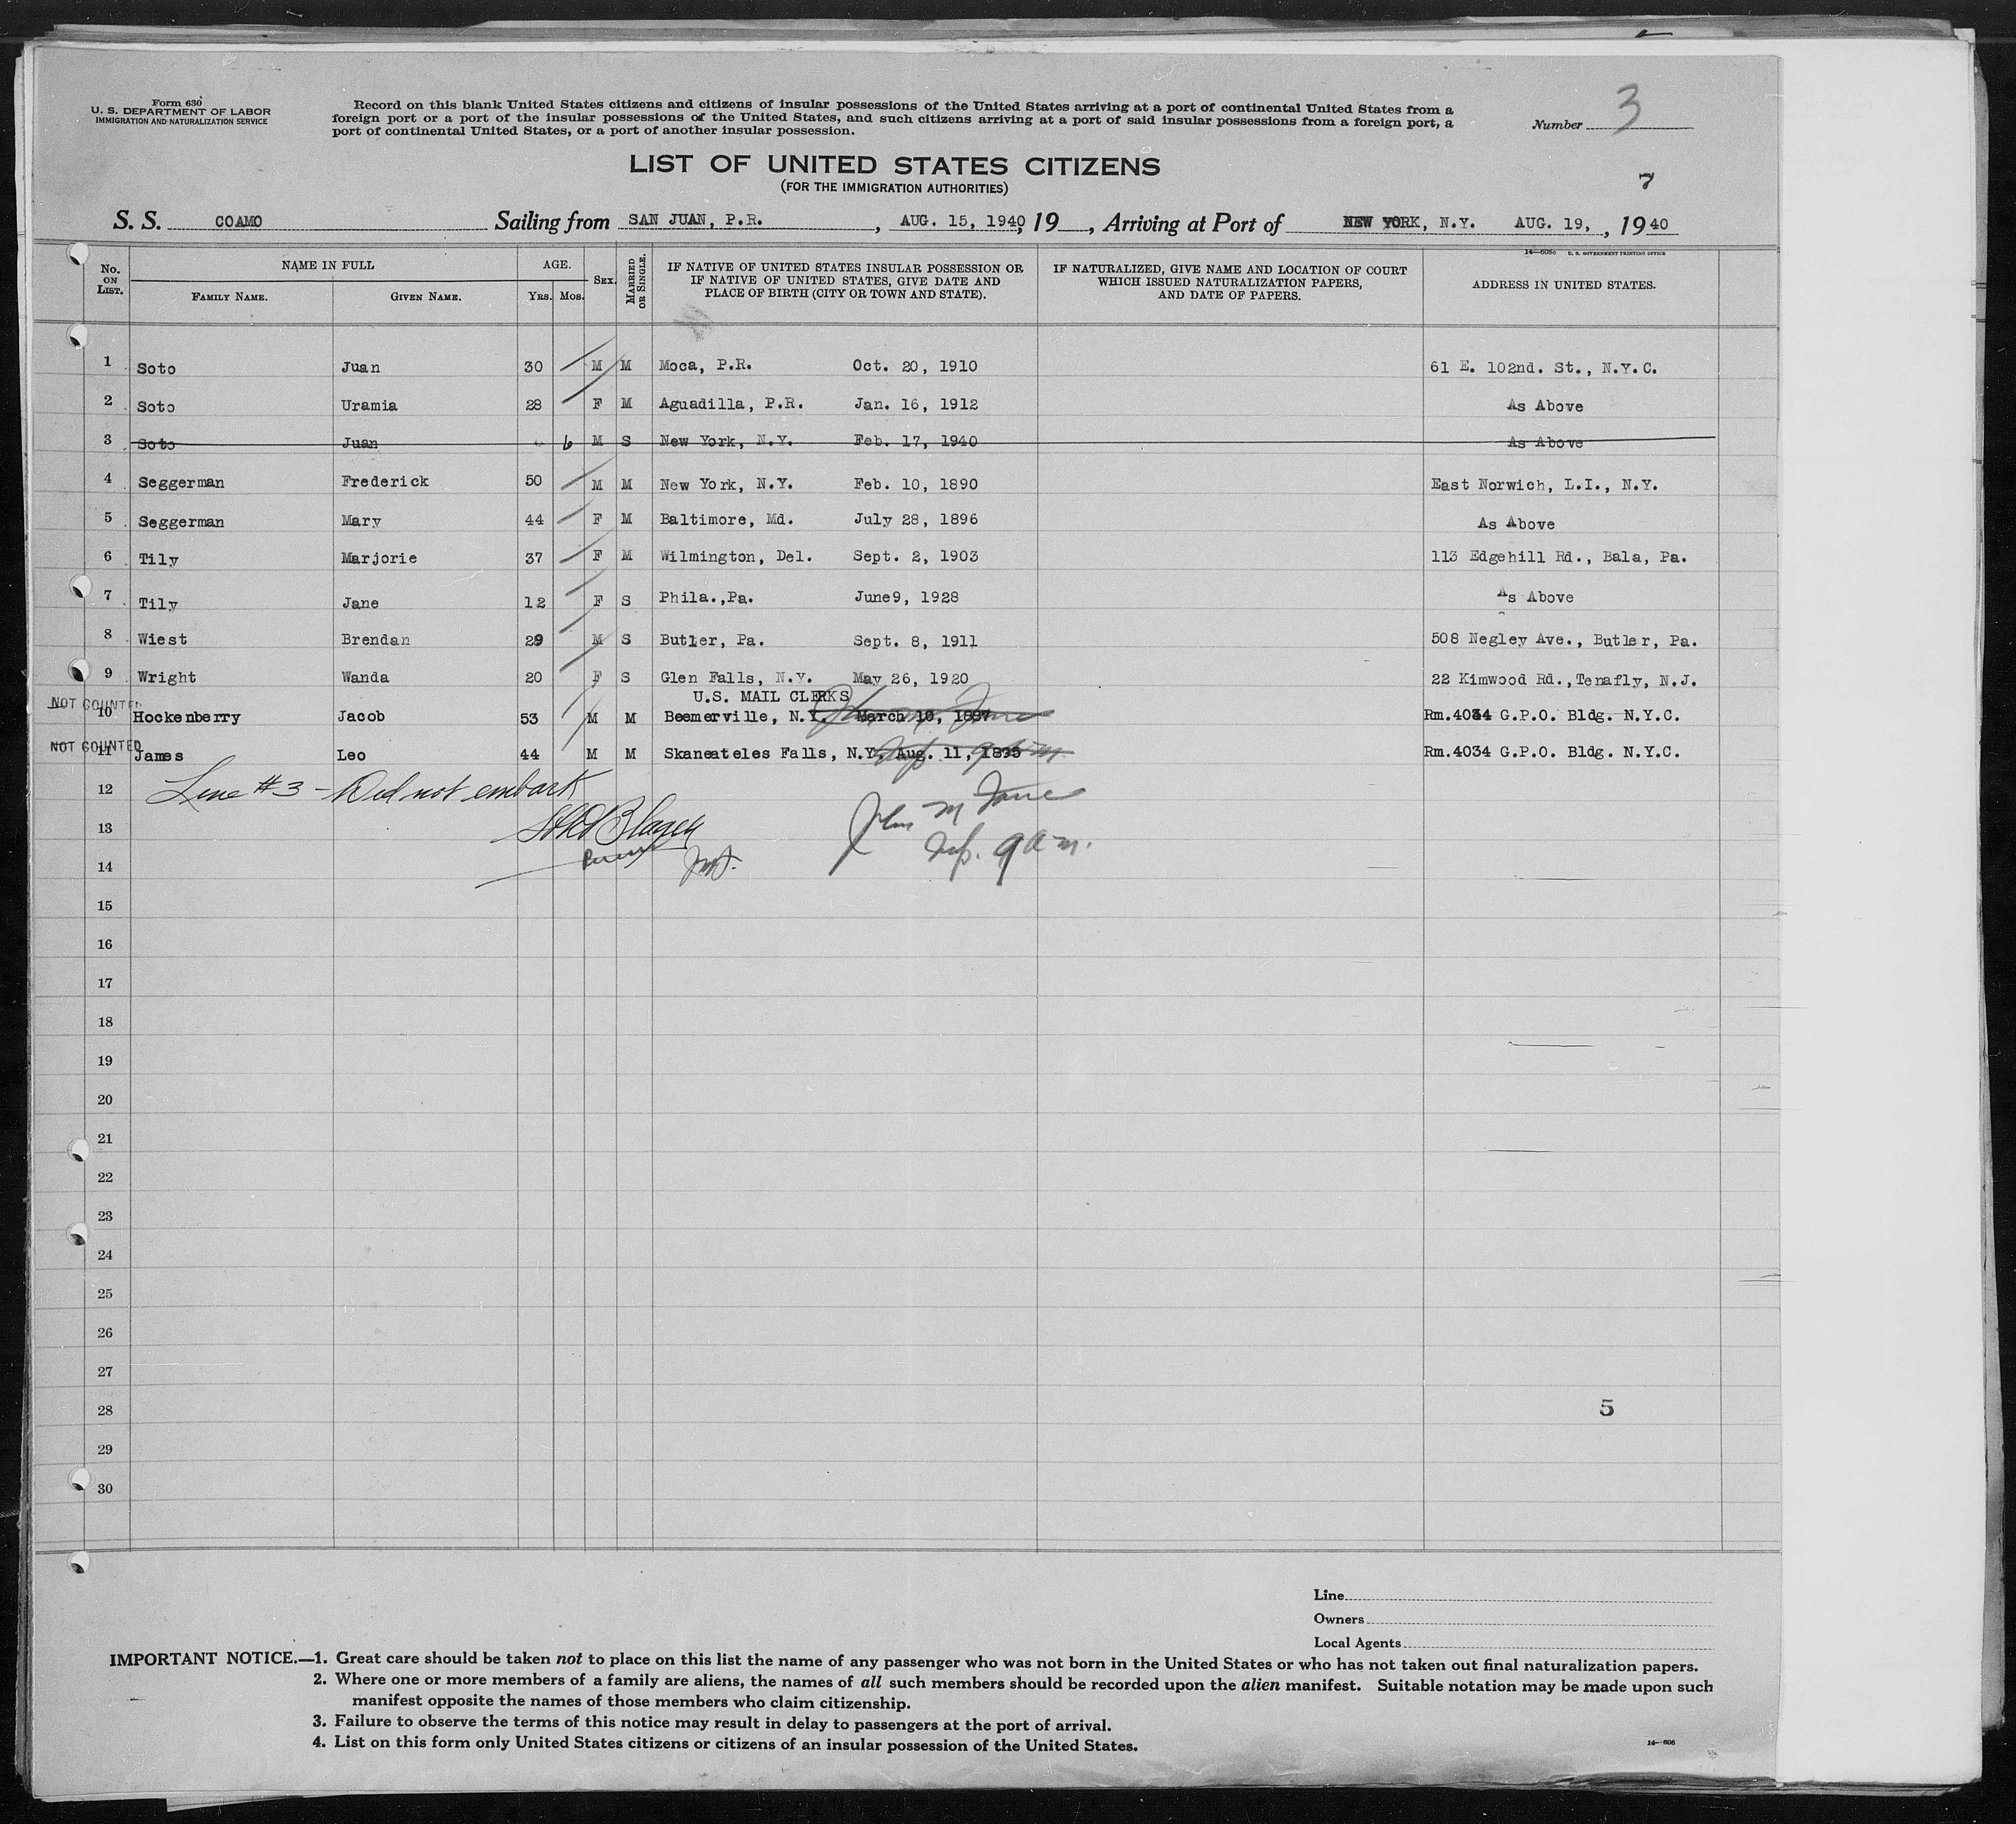 Form 630
U. S. DEPARTMENT OF LABOR
IMMIGRATION AND NATURALIZATION SERVICE
Record on this blank United States citizens and citizens of insular possessions of the United States arriving at a port of continental United States from a
foreign port or a port of the insular possessions of the United States, and such citizens arriving at a port of said insular possessions from a foreign port, a
port of continental United States, or a port of another insular possession.
Number 3
LIST OF UNITED STATES CITIZENS
(FOR THE IMMIGRATION AUTHORITIES)
7
S. S. COAMO Sailing from SAN JUAN, P.R. , AUG. 15, 1940, 19 , Arriving at Port of NEW YORK, N.Y. AUG. 19, , 1940
14—608a U. S. GOVERNMENT PRINTING OFFICE
No. ON LIST. NAME IN FULL FAMILY NAME. GIVEN NAME. AGE. YRS. MOS. SEX. MARRIED OR SINGLE. IF NATIVE OF UNITED STATES INSULAR POSSESSION OR IF NATIVE OF UNITED STATES, GIVE DATE AND PLACE OF BIRTH (CITY OR TOWN AND STATE). IF NATURALIZED, GIVE NAME AND LOCATION OF COURT WHICH ISSUED NATURALIZATION PAPERS, AND DATE OF PAPERS. ADDRESS IN UNITED STATES.
1 Soto Juan 30 M M Moca, P.R. Oct. 20, 1910 61 E. 102nd. St., N.Y.C.
2 Soto Uramia 28 F M Aguadilla, P.R. Jan. 16, 1912 As Above
3 Soto Juan 6 M S New York, N.Y. Feb. 17, 1940 As Above
4 Seggerman Frederick 50 M M New York, N.Y. Feb. 10, 1890 East Norwich, L.I., N.Y.
5 Seggerman Mary 44 F M Baltimore, Md. July 28, 1896 As Above
6 Tily Marjorie 37 F M Wilmington, Del. Sept. 2, 1903 113 Edgehill Rd., Bala, Pa.
7 Tily Jane 12 F S Phila.,Pa. June9, 1928 As Above
8 Wiest Brendan 29 M S Butler, Pa. Sept. 8, 1911 508 Negley Ave., Butler, Pa.
9 Wright Wanda 20 F S Glen Falls, N.Y. May 26, 1920 22 Kimwood Rd.,Tenafly, N.J.
U.S. MAIL CLERKS
NOT COUNTED
10 Hockenberry Jacob 53 M M Beemerville, N.Y. March 10, 1887 Rm.4034 G.P.O. Bldg. N.Y.C.
NOT COUNTED
11 James Leo 44 M M Skaneateles Falls, N.Y. Aug. 11, 1895 Rm.4034 G.P.O. Bldg. N.Y.C.
12 Line #3 - Did not embark
13 John M
14
15
16
17
18
19
20
21
22
23
24
25
26
27
28 5
29
30
Line
Owners
Local Agents
IMPORTANT NOTICE.—1. Great care should be taken not to place on this list the name of any passenger who was not born in the United States or who has not taken out final naturalization papers.
2. Where one or more members of a family are aliens, the names of all such members should be recorded upon the alien manifest. Suitable notation may be made upon such
manifest opposite the names of those members who claim citizenship.
3. Failure to observe the terms of this notice may result in delay to passengers at the port of arrival.
4. List on this form only United States citizens or citizens of an insular possession of the United States.
14—608